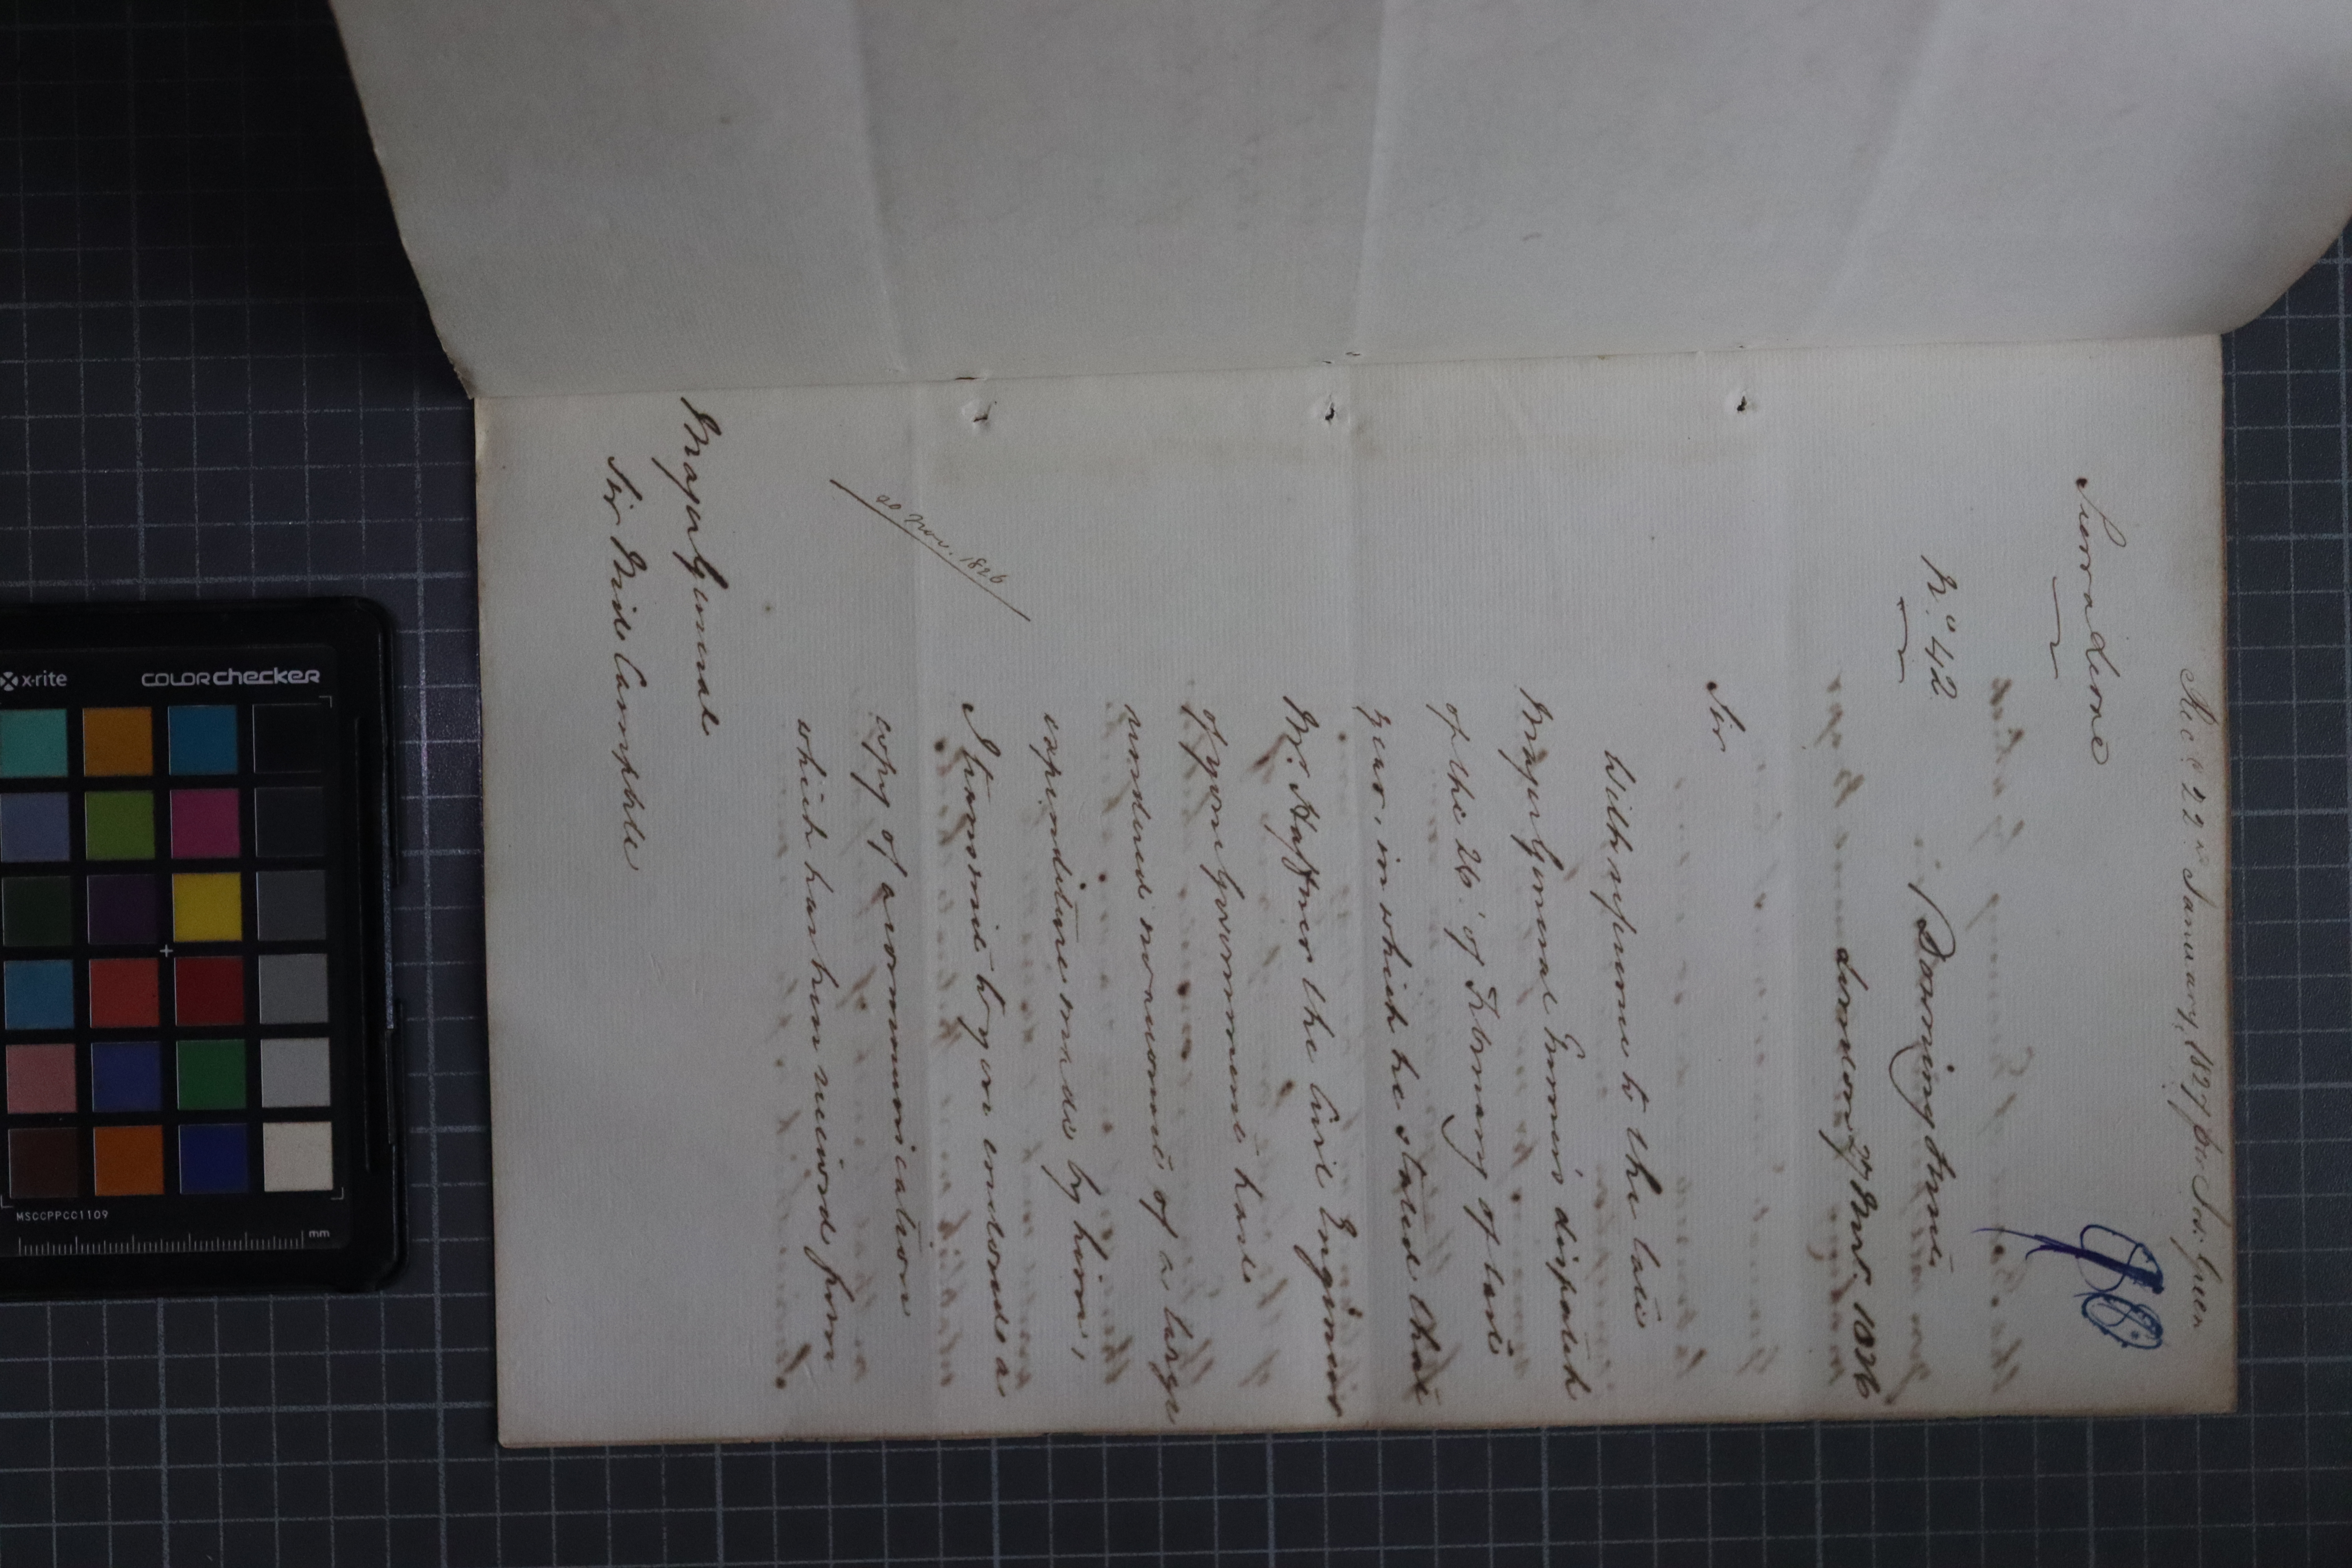 Rec.d 22.d January 1827 per Jos: Green
Sierra Leone
N.o 42
Downing Street
London 27 Nov.r 1826
Sir
With reference to the late
Major General Turner's dispatch
of the 26 of February of last
year, in which he stated that
Mr. Haffner the Civil Engineer
of your Government had
rendered no account of a large
expenditure made by him,
I transmit to you enclosed a
copy of a communication
which has been received from
20 Nov. 1826
Major General
Sir Neil Campbell
x-rite
COLORchecker
MSCCPPCC1109
mm